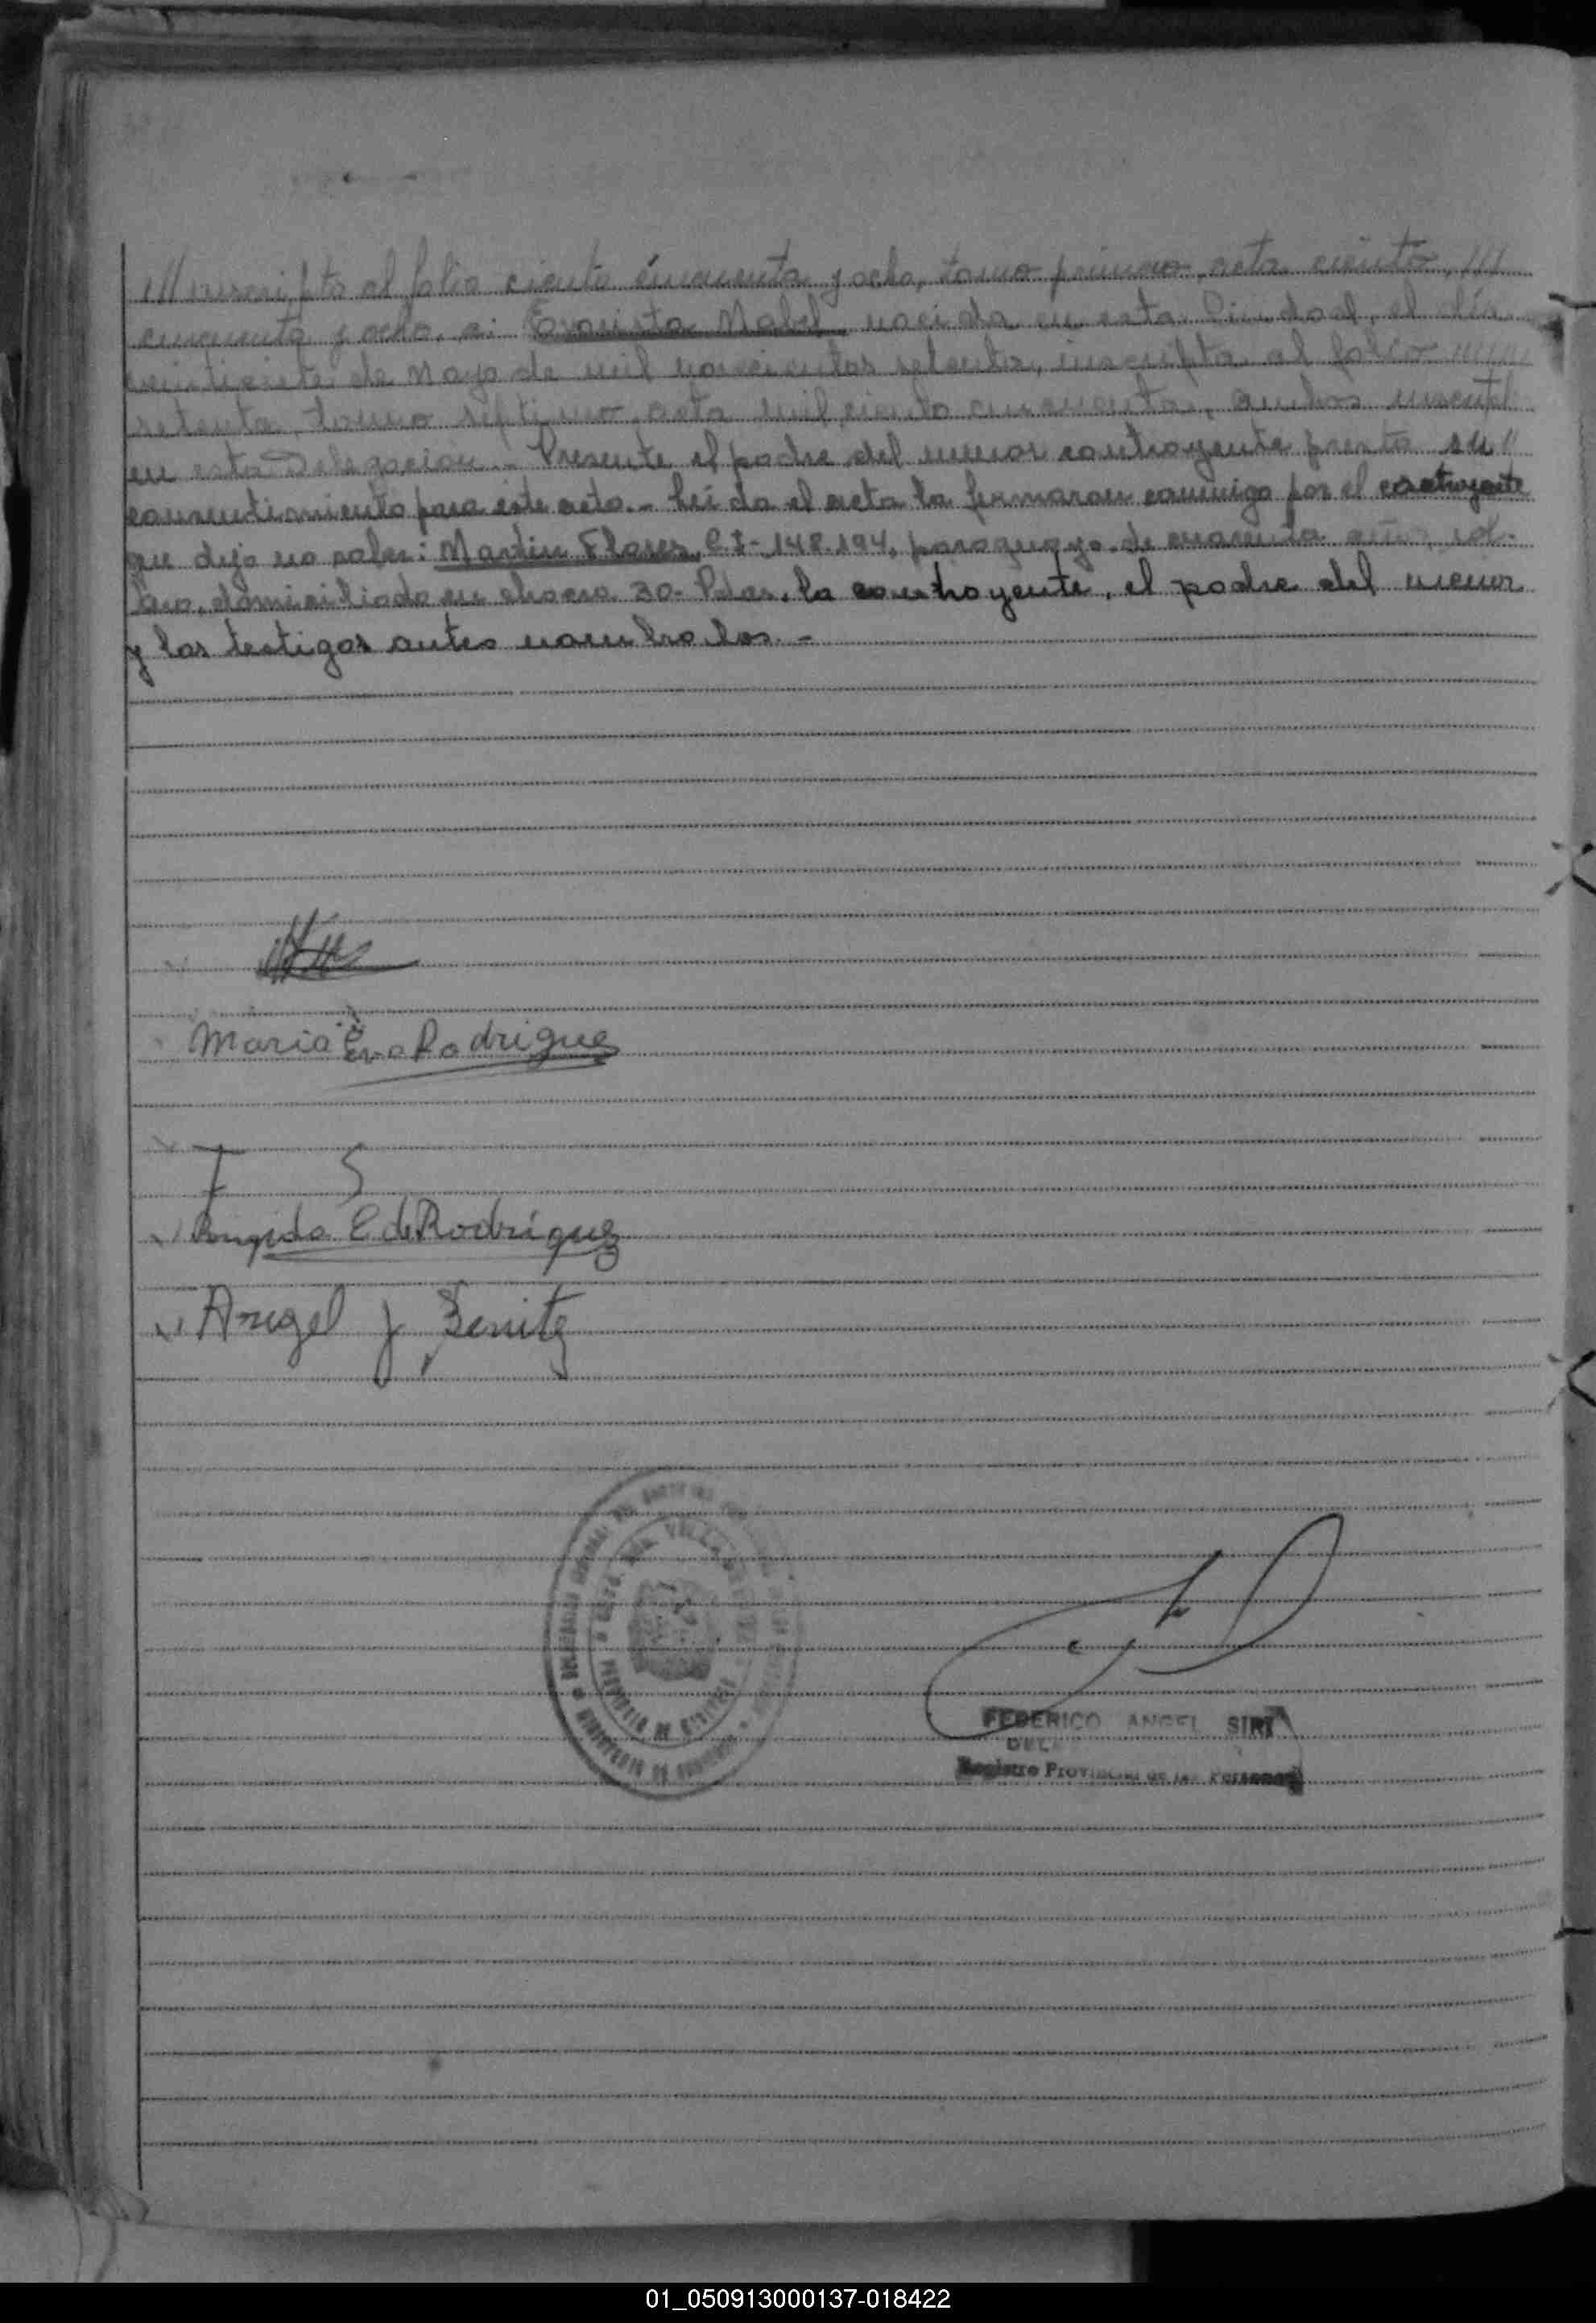 /// inscripta al folio ciento cincuenta y ocho, tomo primero, acta ciento, ///
cincuenta y ocho, a: Evarista Mabel, nacida en esta Ciudad, el día
veintisiete de Mayo de mil novecientos setenta, inscripta al folio
setenta, tomo septimo, acta mil ciento cincuenta, ambos
en esta Delegacion.- Presente el padre del menor contrayente presta su //
consentimiento para este acto.- Leída el acta la firmaron conmigo por el contrayente
que dijo no saber: Martin Flores, C.I- 148.194, paraguayo, de cuarenta años,
domiciliado en chacra 30- Pdas, la contrayente, el padre del menor
y los testigos antes nombrados.-
Maria Eva Rodrigue
E de Rodriguez
Angel J Benitez
PROVINCIA DE MISIONES
FEDERICO ANGEL SIRI
Registro Provincial de las Personas
01_050913000137-018422